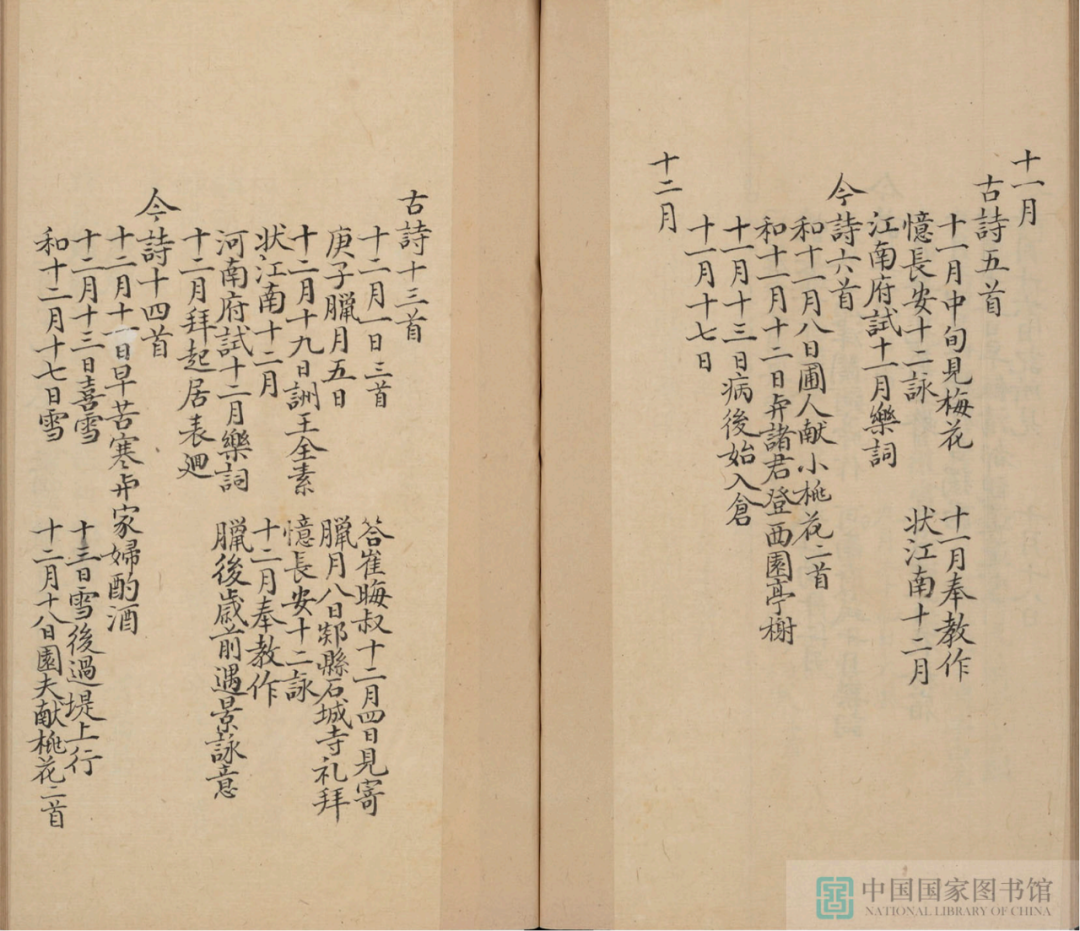 十一月
古詩五首
十一月中旬見梅花　十一月奉教作
憶長安十二詠　状江南十二月
江南府試十一月樂詞
今詩六首
和十一月八日圃人献小桃花二首
和十一月十二日㒜諸君登西園亭榭
十一月十三日病後始入倉
十一月十七日
十二月
古詩十三首
十二月一日三首　答崔晦叔十二月四日見寄
庚子臘月五日　臘月八日郯縣石城寺礼拜
十二月十九日詶王全素　憶長安十二詠
状江南十二月　十二月奉教作
河南府試十二月樂詞　臘後歳前遇景詠意
十二月拜起居表廻
今詩十四首
十二月十一日早苦寒㒜家婦酌酒
十二月十三日喜雪　十三日雪後過堤上行
和十二月十七日雪　十二月十八日園夫献桃花二首
中国国家图书馆
NATIONAL LIBRARY OF CHINA